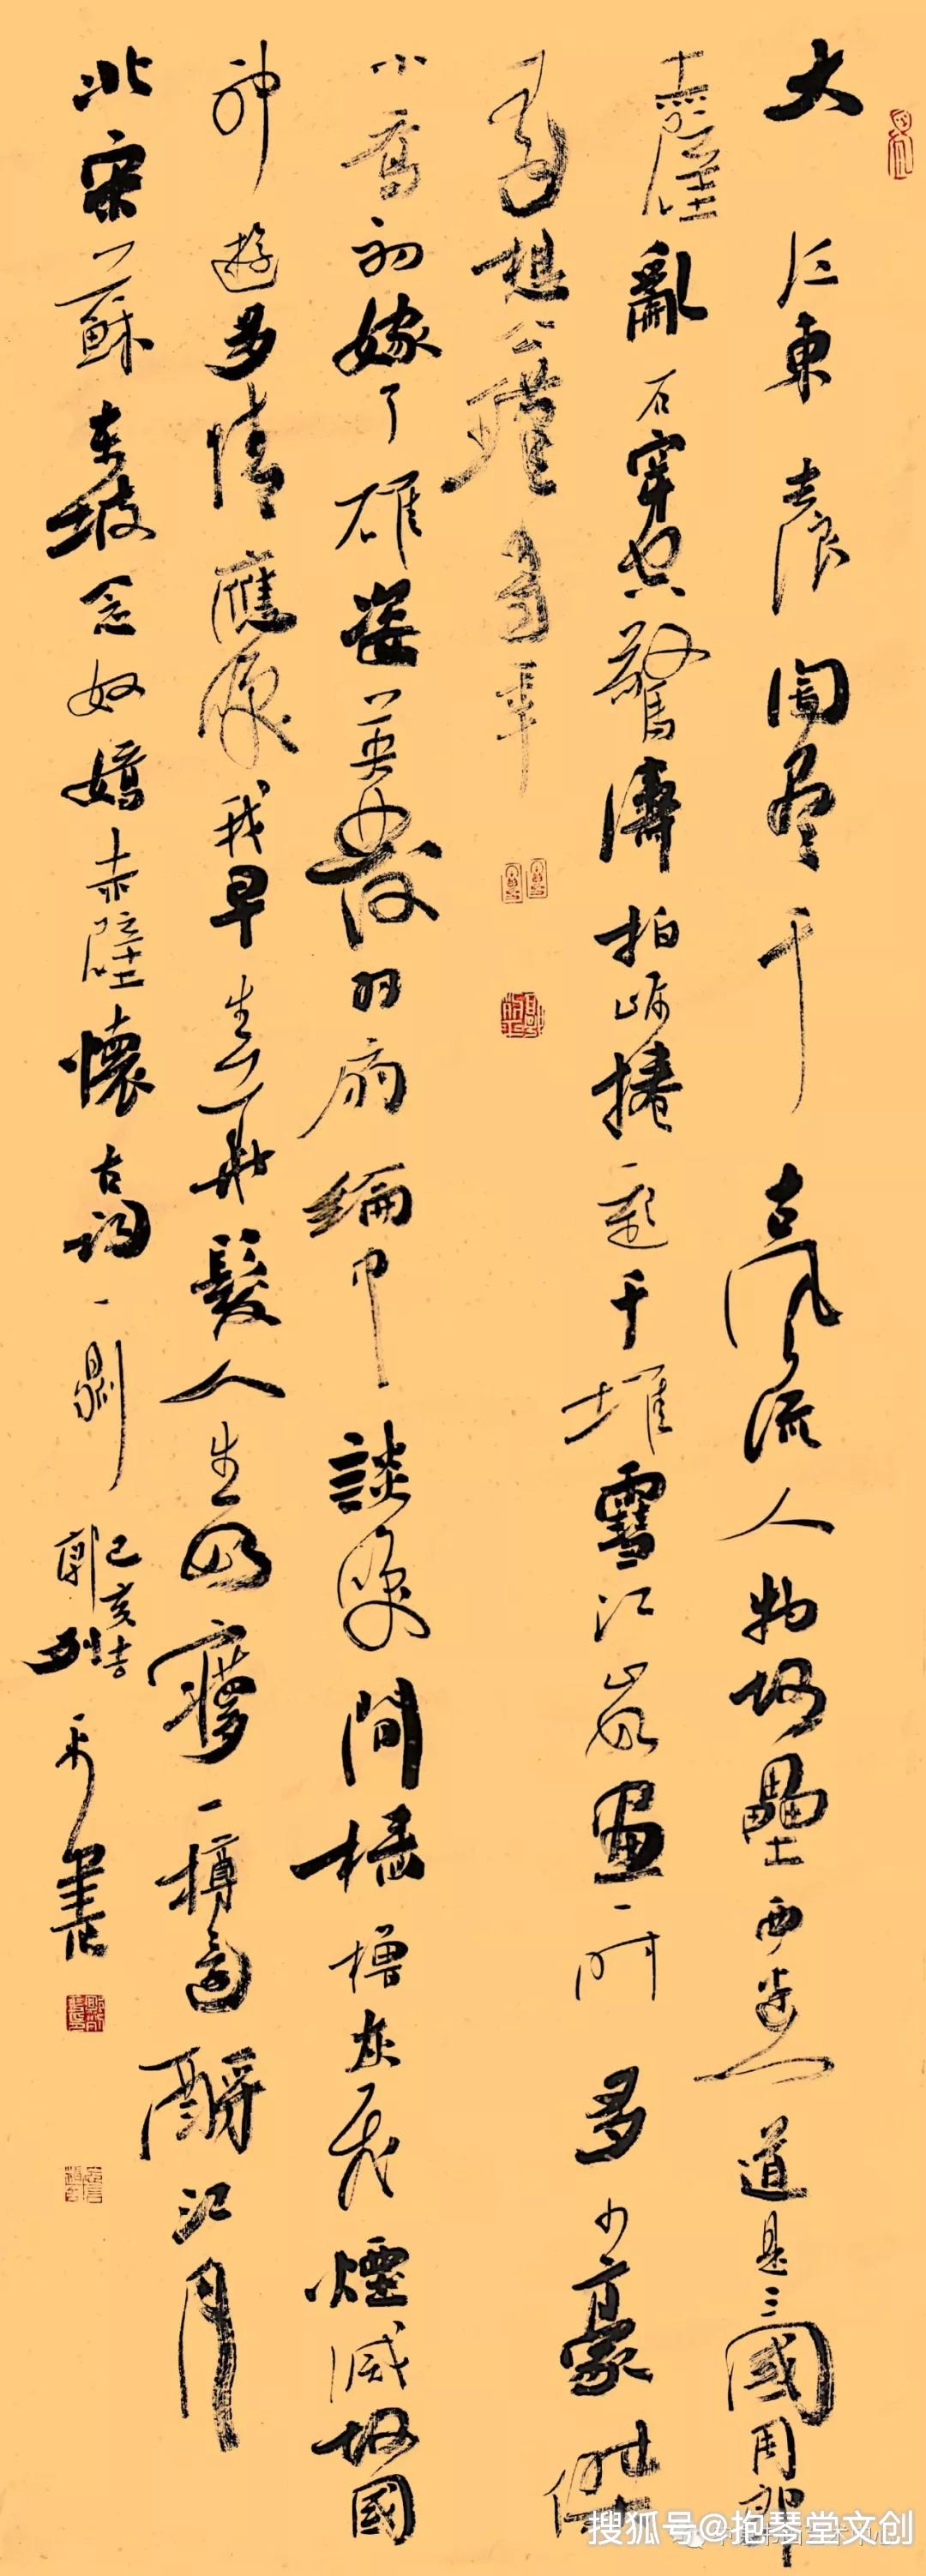 大江東去浪淘盡千古風流人物故壘西邊人道是三國周郎
赤壁亂石穿空驚濤拍岸捲起千堆雪江山如畫一時多少豪傑
遙想公瑾當年
小喬初嫁了雄姿英發羽扇綸巾談笑間檣櫓灰飛煙滅故國
神遊多情應笑我早生華髮人生如夢一樽還酹江月
北宋蘇東坡念奴嬌赤壁懷古詞一則
己亥
書
搜狐号@抱琴堂文创